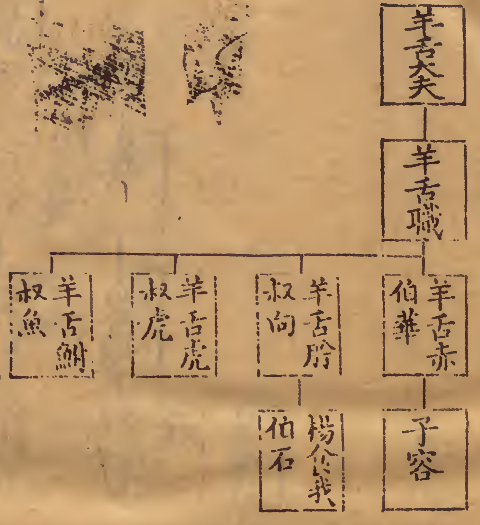 羊舌大夫
羊舌職
羊舌赤
伯華
羊舌肸
叔向
羊舌虎
叔虎
羊舌鮒
叔魚
子容
楊食我
伯石